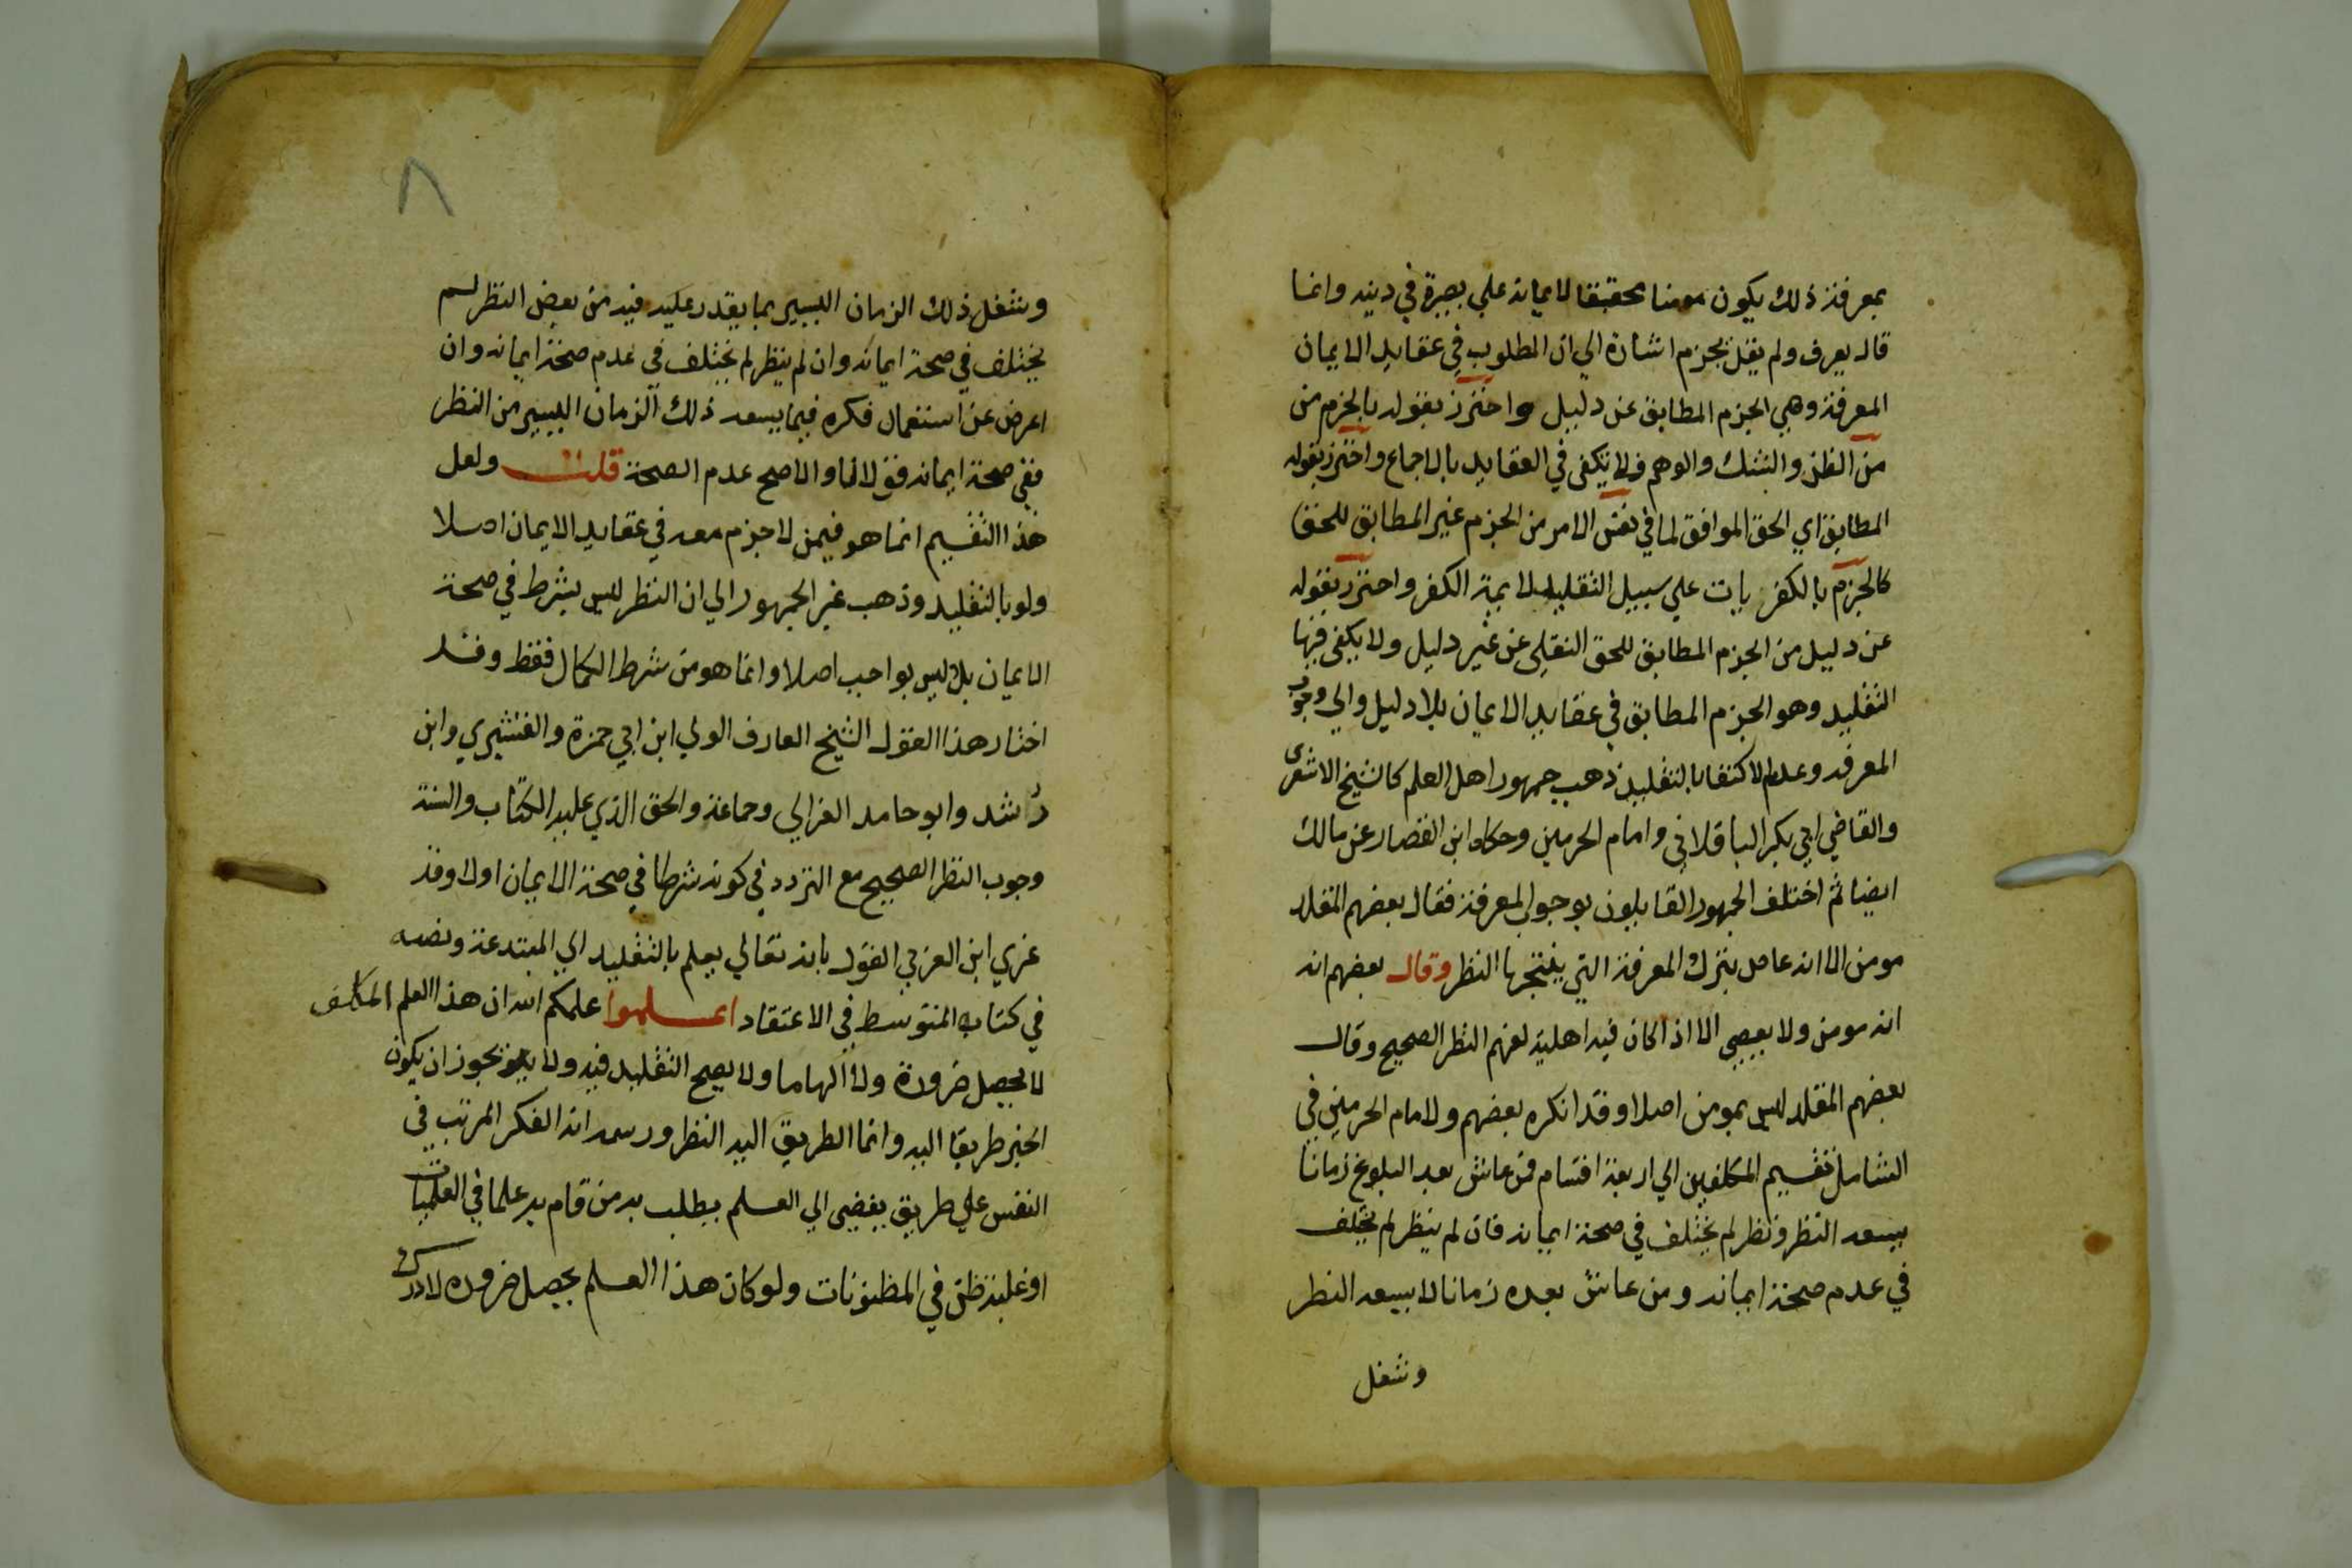 بمعرفة ذلك يكون مومنا محققا لايمانه علي بصيرة في دينه وانما
قال يعرف ولم يقل يجزم اشارة الي ان المطلوب في عقايد الايمان
المعرفة وهي الجزم المطابق عن دليل واحترز بقوله بالجزم من
من الظن والشك والوهم فلا يكفى في العقايد بالاجماع واحترز بقوله
المطابق اي الحق الموافق لما في نفس الامر من الجزم غير المطابق للحق
كالجزم بالكفر يات علي سبيل التقليد لايمة الكفر واحترز بقوله
عن دليل من الجزم المطابق للحق التقلي عن غير دليل ولا يكفى فيها
التقليد وهو الجزم المطابق في عقايد الايمان بلا دليل والي وجوب
المعرفه وعدم الاكتفا بالتقليد ذهب جمهور اهل العلم كالشيخ الاشعرى
والقاضي ابي بكر الباقلاني وامام الحرمين وحكاه ابن القصار عن مالك
ايضا ثم اختلف الجمهور القايلون بوجوب المعرفة فقال بعضهم المقلد
مومن الا انه عاص بترك المعرفة التي ينتجها النظر وقال بعضهم انه
انه مومن ولا يعصي الا اذا كان فيه اهلية لفهم النظر الصحيح وقال
بعضهم المقلد ليس بمومن اصلا وقد انكره بعضهم ولامام الحرمين في
الشامل تقسيم المكلفين الي اربعة اقسام فمن عاش بعد البلوغ زمانا
يسعه النظر ونظر لم يختلف في صحة ايمانه فان لم ينظر لم يختلف
في عدم صحة ايمانه ومن عاش بعده زمانا لا يسعه النظر
وشغل
٨
وشغل ذلك الزمان اليسير بما يقدر عليه فيه من بعض النظر لم
يختلف في صحة ايمانه وان لم ينظر لم يختلف في عدم صحة ايمانه وان
اعرض عن استعمال فكره فيما يسعه ذلك الزمان اليسير من النظر
ففي صحة ايمانه قولان والاصح عدم الصحة قلت ولعل
هذا التقسيم انما هو فيمن لا جزم معه في عقايد الايمان اصلا
ولو بالتقليد وذهب غير الجمهور الي ان النظر ليس بشرط في صحة
الايمان بل ليس بواجب اصلا وانما هو من شرط الكمال فقط وقد
اختار هذا القول الشيخ العارف الولي ابن ابي حمزة والقشيري وابن
رشد وابو حامد الغزالي وجماعة والحق الذي عليه الكتاب والسنة
وجوب النظر الصحيح مع التردد في كونه شرطا في صحة الايمان اولا وقد
عزي ابن العربي القول بانه تعالي يعلم بالتقليد الي المبتدعة ونصه
في كتابه المتوسط في الاعتقاد اعلموا علمكم الله ان هذا العلم المكلف
لا يحصل ضرورة ولا الهاما ولا يصح التقليد فيه ولا يجوز ان يكون
الخبر طريقا اليه وانما الطريق اليه النظر ورسمه انه الفكر المرتب في
النفس علي طريق يفضي الي العلم يطلب به من قام به علما في العلميات
او غلبة ظن في المظنونات ولو كان هذا العلم يحصل ضروره لادرك